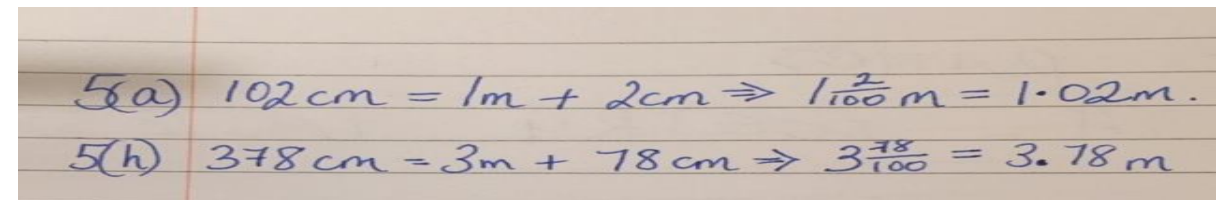 5(a) 102 cm = 1m + 2cm ⇒ 1 2/100 m = 1.02m.
5(h) 378 cm = 3m + 78 cm ⇒ 3 78/100 = 3.78 m